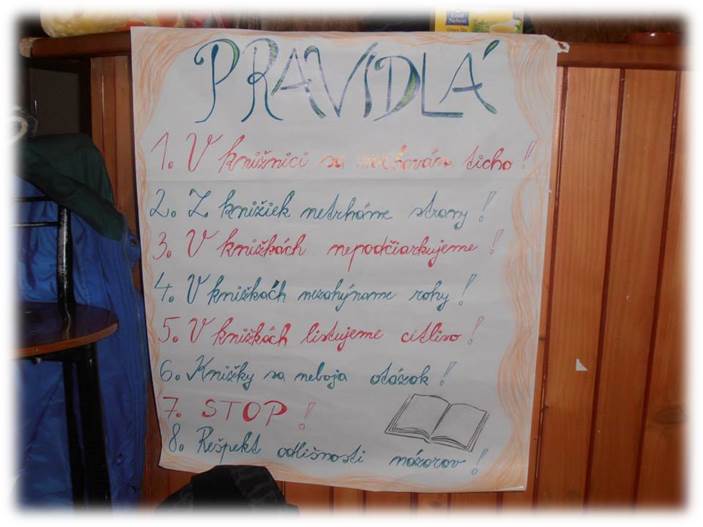 PRAVIDLÁ
1. V knižnici sa zachováva ticho!
2. Z knižiek netrháme strany!
3. V knižkách nepodčiarkujeme!
4. V knižkách nezahýname rohy!
5. V knižkách listujeme citlivo!
6. Knižky sa neboja otázok!
7. STOP!
8. Rešpekt odlišnosti názorov!